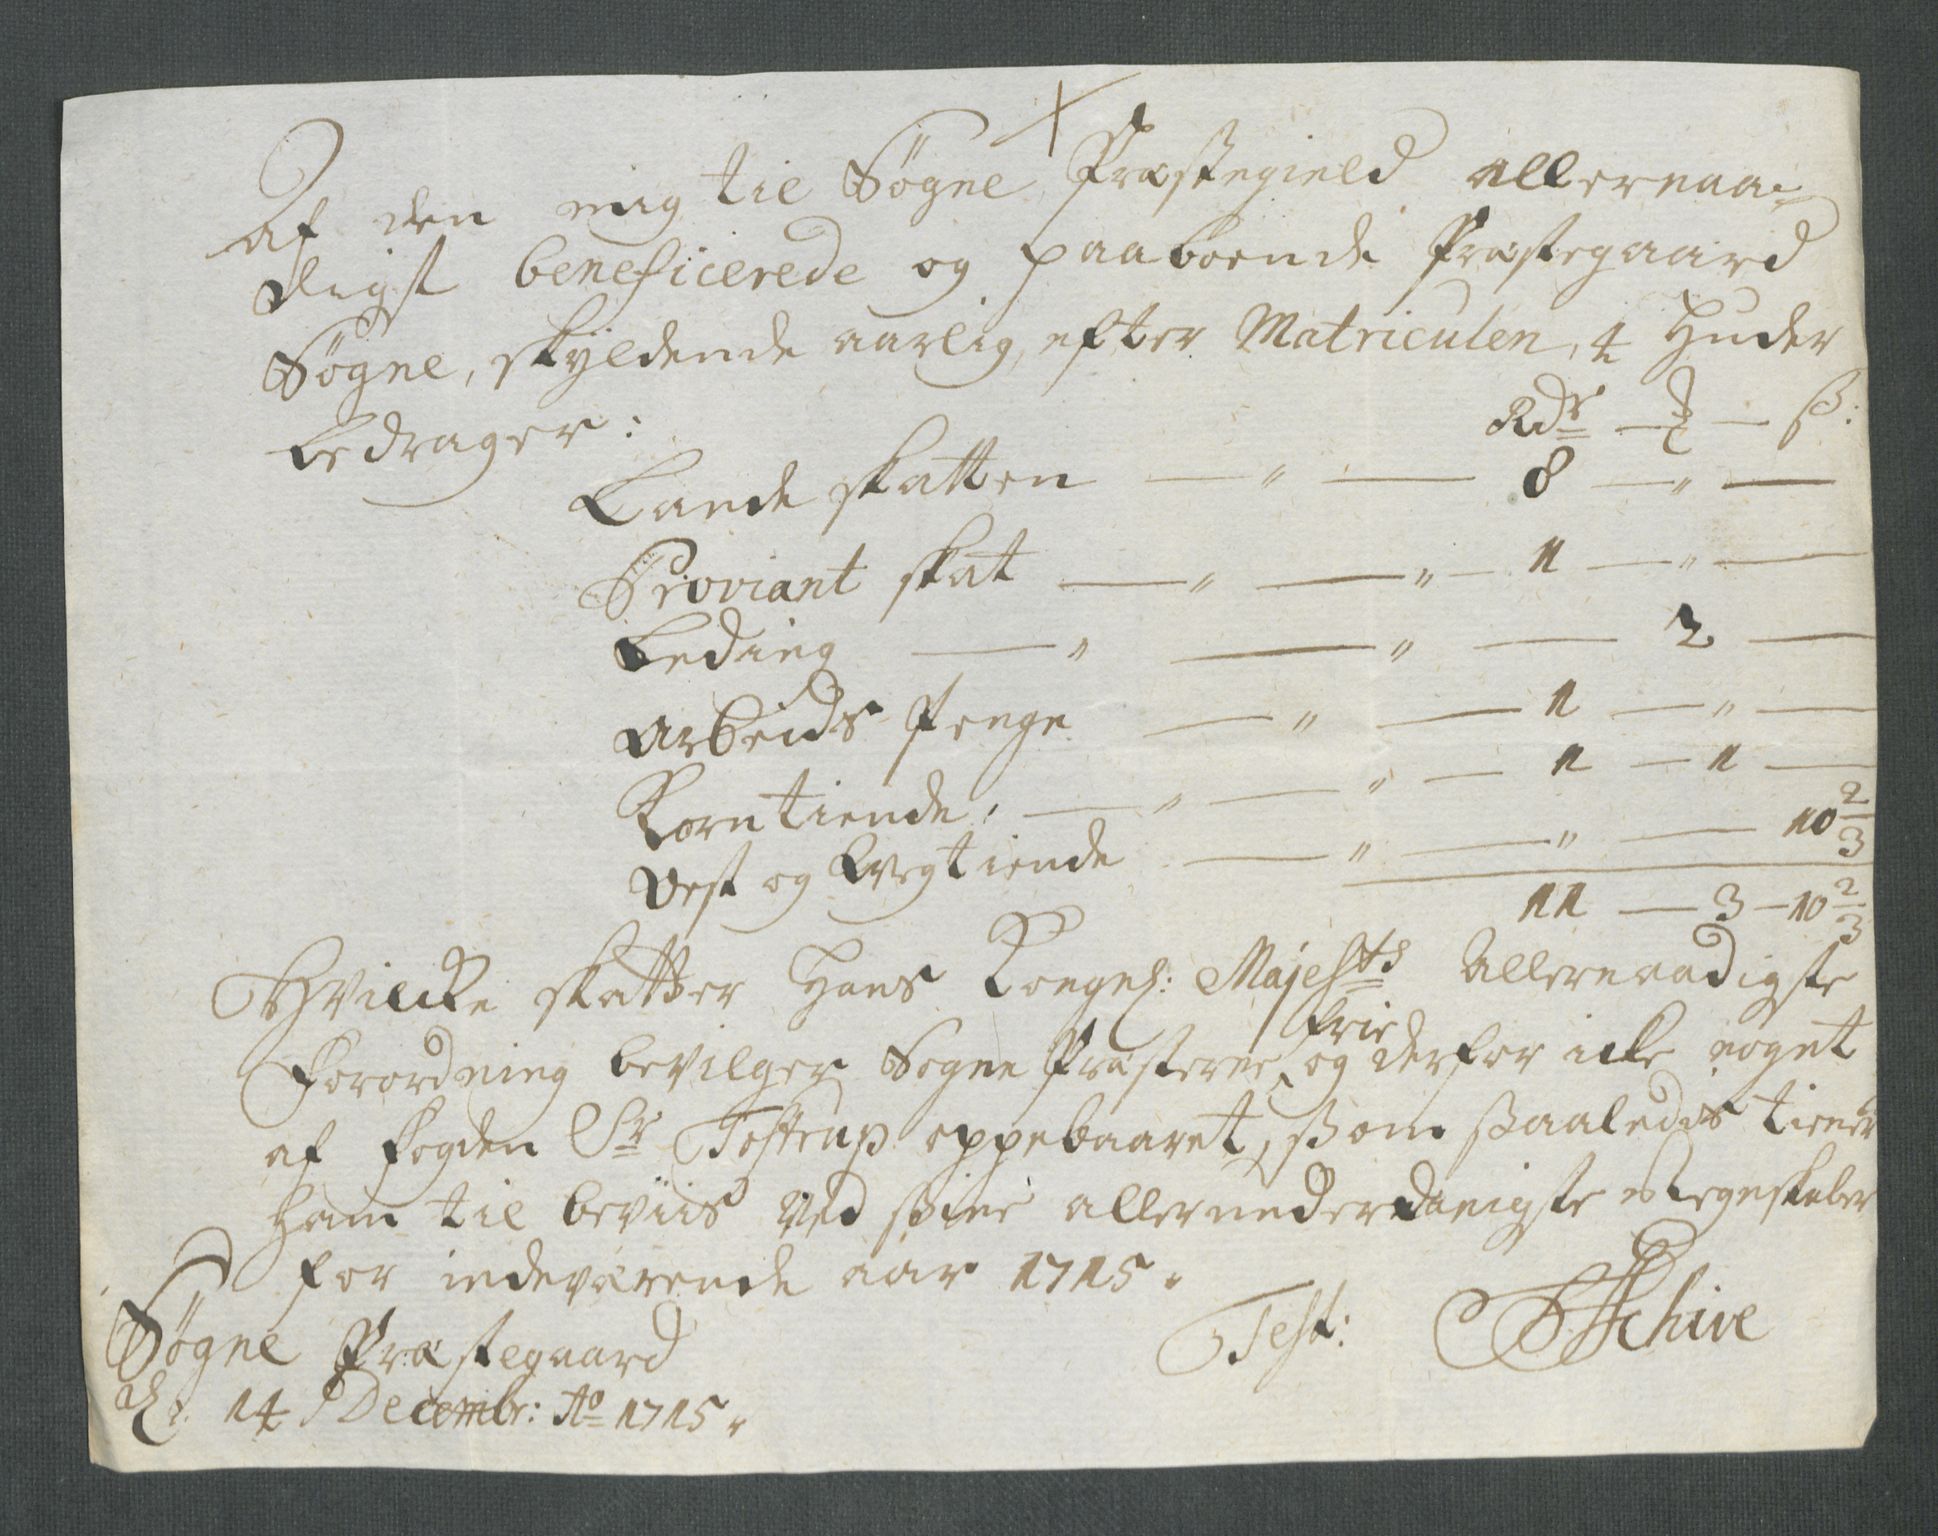 Af den mig til Søgne Præstegield allernaa-
digst beneficerede og paaboende Præstegaard
Søgne, skyldende aarlig efter Matriculen, 4 Huder
bedrager:
Rdr — — ß:
Lande skatten — " — 8 — " —
Proviant skat — " — " — 1 — " —
Leding — " — " — 2 —
Arbeids penge — " — 1 — " —
Korntiende, — " — " — 1 — 1 —
Oest og Qvegtiende — " — " — 10 2/3
11 — 3 — 10 2/3
Hvilcke skatter Hans Kongel: Majests Allernaadigste
Forordning bevilger Sogne Præsterne frie og derfor icke noget
af fogden Sr Tostrup oppebaaret, ßom ßaaledis tiener
ham til beviis ved ßine allerunderdanigste Regnskaber
for indeværende aar 1715.
Søgne Præstegaard
d. 14 Decembr: Ao 1715.
Test: Schive